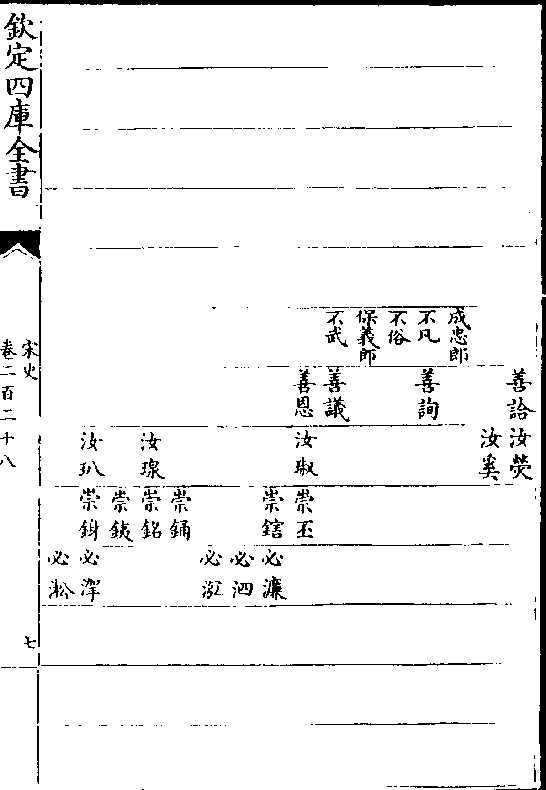 善詥
汝熒
汝奚
成忠郎
不凡
善詢
不俗
保義郎
不武
善議
善恩
汝淑
崇丕
崇鎋
必濂
必泗
必泓
崇銿
汝㻎
崇銘
崇銕
汝玐
崇𨥤
必渾
必淞
欽定四庫全書
宋史
卷二百二十八
七